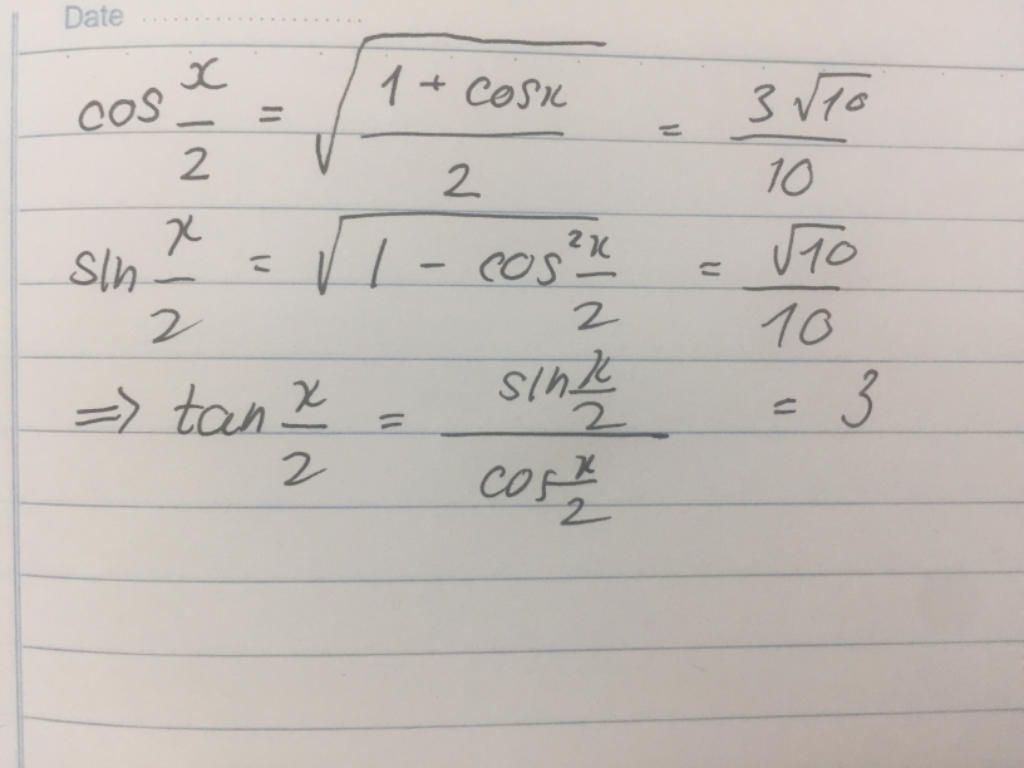 Date
cos x/2 = √((1 + cosx)/2) = 3√10/10
sin x/2 = √(1 - cos²x/2) = √10/10
⇒ tan x/2 = (sin x/2)/(cos x/2) = 3